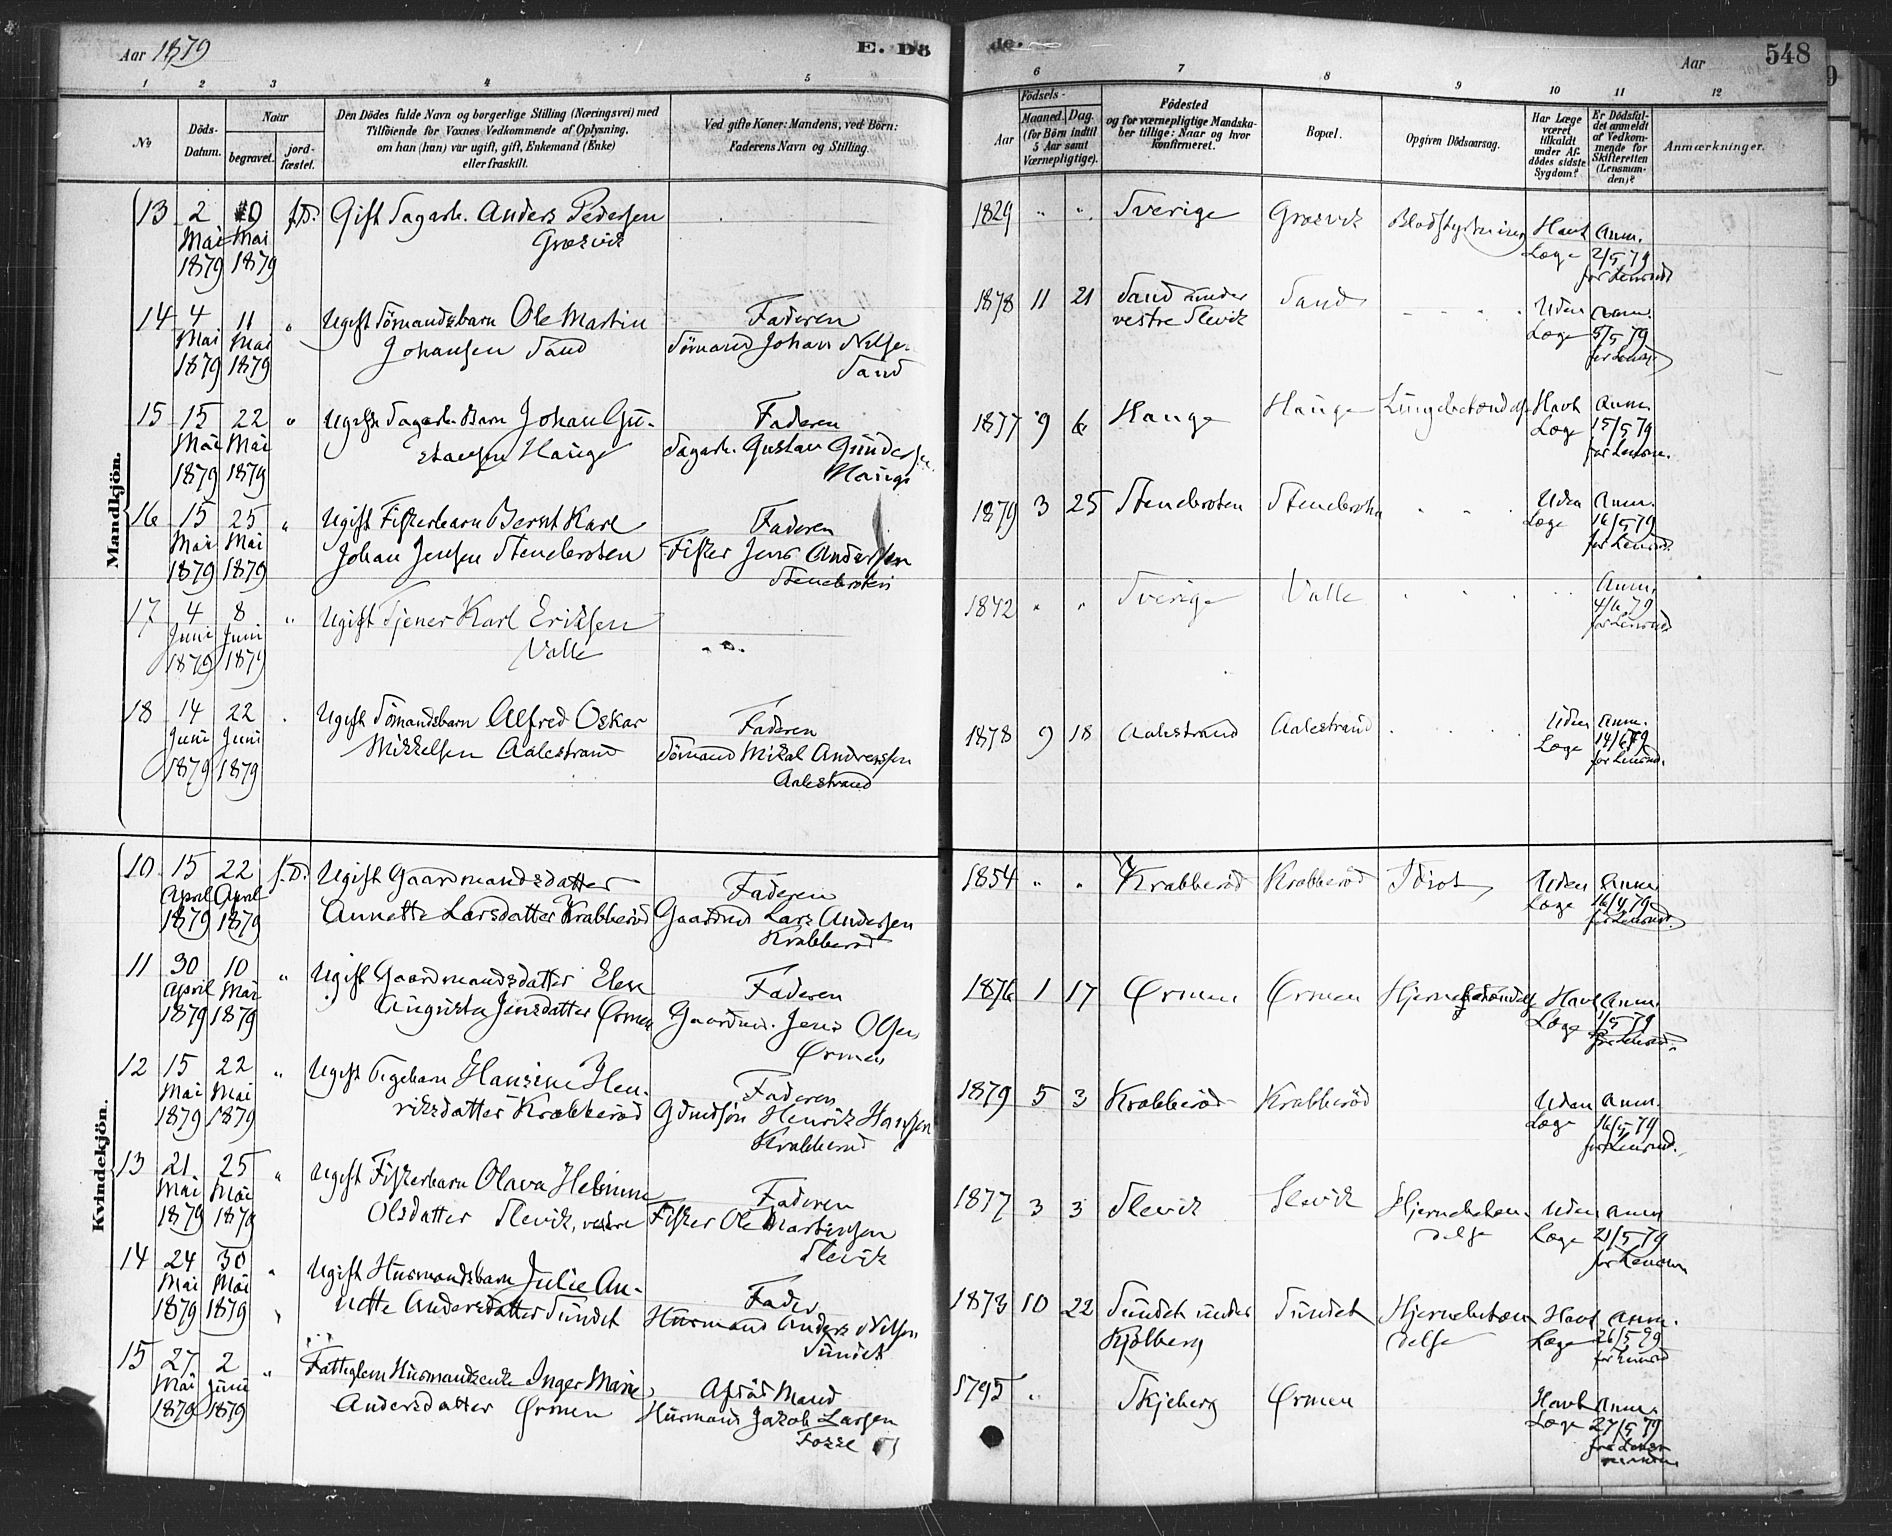 Aar 1879
E. Dö
de.
Aar
548
1 2 3 4 5 6 7 8 9 10 11 12
No.
Döds-
Datum.
Naar
begravet.
jord-
fæstet.
Den Dödes fulde Navn og borgerlige Stilling (Næringsvei) med
Tilföiende for Voxnes Vedkommende af Oplysning,
om han (hun) var ugift, gift, Enkemand (Enke)
eller fraskilt.
Ved gifte Koner: Mandens, ved Börn:
Faderens Navn og Stilling.
Födsels-
Aar
Maaned. Dag.
(for Börn indtil
5 Aar samt
Værnepligtige).
Födested
og for værnepligtige Mandska-
ber tillige: Naar og hvor
konfirmeret.
Bopæl.
Opgiven Dödsaarsag.
Har Læge
været
tilkaldt
under Af-
dödes sidste
Sygdom?
Er Dödsfal-
det anmeldt
af Vedkom-
mende for
Skifteretten
(Lensman-
den)?
Anmærkninger.
Mandkjön.
13 2 Mai 1879 Mai 1879 s.D. Gift Sagarb. Anders Pedersen
Græsvik
1829 " " Sverige Græsvik Blodstyrtning Havt Læge Anm. 2/5 79 for Lensmd
14 4 Mai 1879 11 Mai 1879 " Ugift Sömandsbarn Ole Martin
Johansen Sand
Faderen
Sömand Johan Nilse.
Sand
1878 11 21 Sand under
vestre Slevik
Sand " Uden Læge Anm. 5/5 79
15 15 Mai 1879 22 Mai 1879 " Ugift Sagarb. Barn Johan Gu-
stavsen Hauge
Faderen
Sagarb. Gustav Gunders
Hauge
1877 9 6 Hauge Hauge Lungebetændelse Havt Læge Anm. 15/5 79
16 15 Mai 1879 25 Mai 1879 " Ugift Fiskerbarn Bernt Karl
Johan Jensen Stenebroten
Faderen
Fisker Jens Andersen
Stenebroten
1879 3 25 Stenebroten Stenebroten " Uden Læge Anm. 16/5 79 for Lensmd.
17 4 Juni 1879 8 Juni 1879 " Ugift Tjener Karl Eriksen
Valle
" "
1842 " " Sverige Valle " " Anm. 4/6 79 for Lensmd
18 14 Juni 1879 22 Juni 1879 " Ugift Sömandsbarn Alfred Oskar
Mikkelsen Aalestrand
Faderen
Sömand Mikal Andreassen
Aalestrand
1878 9 18 Aalestrand Aalestrand " Uden Læge Anm. 14/6 79 for Lensmd.
Kvindekjön.
10 15 April 1879 22 April 1879 s.D. Ugift Gaardmandsdatter
Annette Larsdatter Krabberöd
Faderen
Gaardmd Lars Andersen
Krabberöd
1854 " " Krabberöd Krabberöd Idiot Uden Læge Anm. 16/4 79 for Lensmd.
11 30 April 1879 10 Mai 1879 " Ugift Gaardmandsdatter Elen
Augusta Jensdatter Ørmen
Faderen
Gaardm. Jens Olsen
Ørmen
1876 1 17 Ørmen Ørmen Hjernebetændelse Havt Læge Anm. 1/5 79 for Lensmd.
12 15 Mai 1879 22 Mai 1879 " Ugift Pigebarn Hansine Hen-
riksdatter Krabberöd
Faderen
Gdmdsön Henrik Hansen
Krabberöd
1879 5 3 Krabberöd Krabberöd Uden Læge Anm. 16/5 79 for Lensmd.
13 21 Mai 1879 25 Mai 1879 " Ugift Fiskerbarn Olava Helmine
Olsdatter Slevik, vestre
Faderen
Fisker Ole Martinsen
Slevik
1877 3 3 Slevik Slevik Hjernebetæn-
delse
Uden Læge Anm 21/5 79
14 24 Mai 1879 30 Mai 1879 " Ugift Husmandsbarn Julie An-
nette Andersdatter Sundet
Fader
Husmand Anders Nilsen
Sundet
1873 10 22 Sundet under
Kjölberg
Sundet Hjernebetæn
delse
Havt Læge Anm. 26/5 79 for Lensmd
15 27 Mai 1879 2 Juni 1879 " Fattiglem Husmandsenke Inger Marie
Andersdatter Ørmen
Afdöd Mand
Husmand Jakob Larsen
1795 " Skjeberg Ørmen Havt Læge Anm. 27/5 79